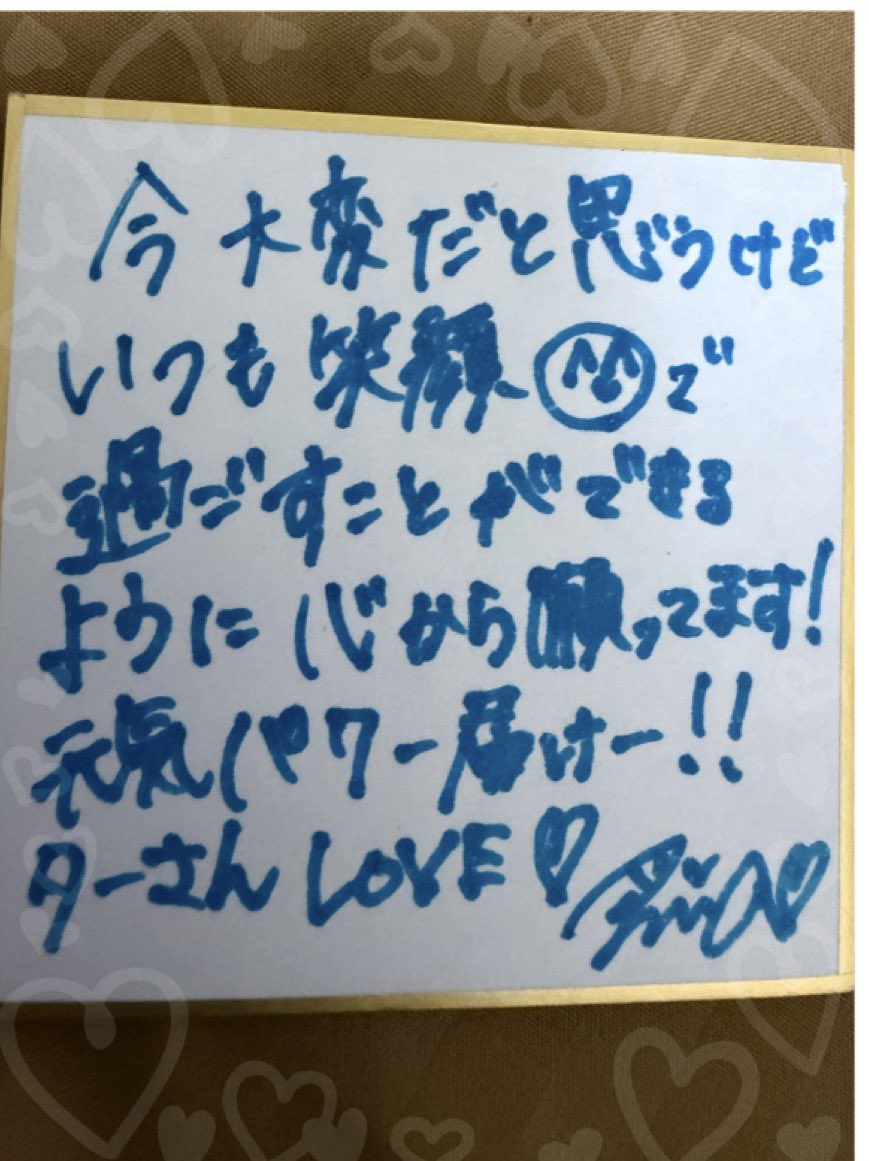 今大変だと思うけど
いつも笑顔で
過ごすことができる
ように心から願ってます!
元気パワー届けー!!
ターさん LOVE♡